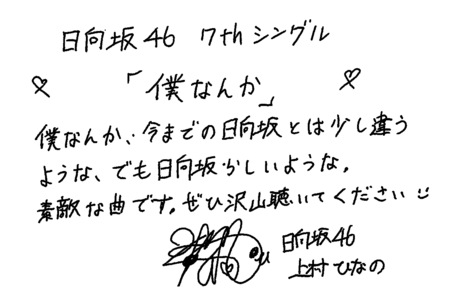 日向坂46 7thシングル
「僕なんか」
僕なんか、今までの日向坂とは少し違う
ような、でも日向坂らしいような。
素敵な曲です。ぜひ沢山聴いてください
日向坂46
上村ひなの